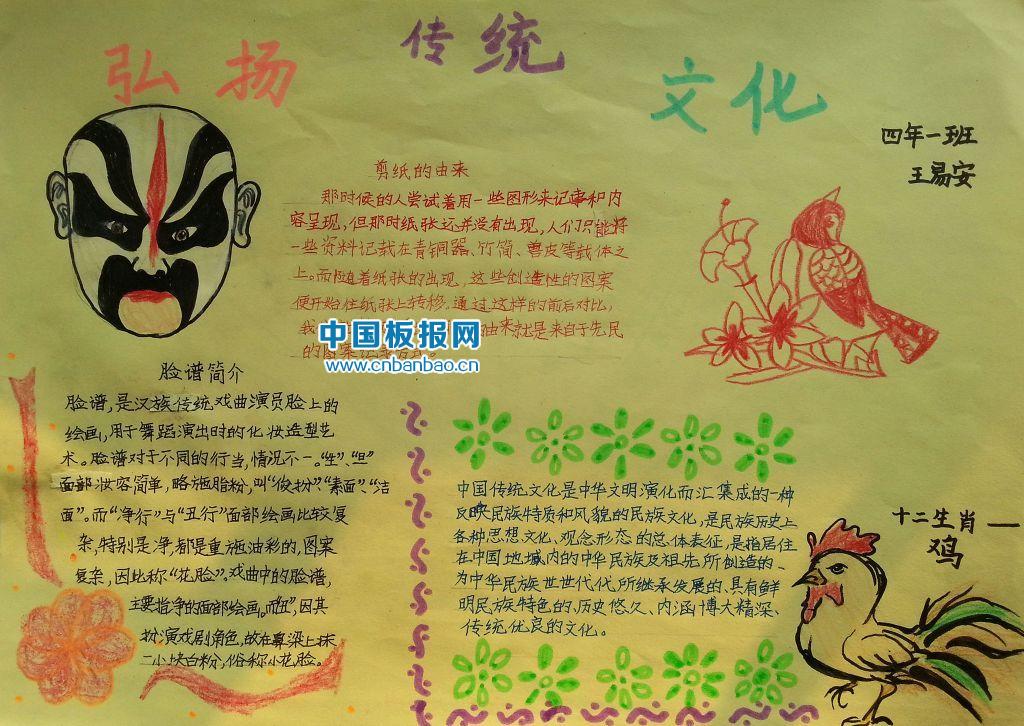 弘扬
传统
文化
四年一班
王易安
剪纸的由来
那时候的人尝试着用一些图形来记事和内
容呈现,但那时纸张还并没有出现,人们只能将
一些资料记载在青铜器、竹简、兽皮等载体之
上。而随着纸张的出现,这些创造性的图案
便开始往纸张上转移。通过这样的前后对比,
我
的由来就是来自于先民
的图案记录方式。
中国板报网
www.cnbanbao.cn
脸谱简介
脸谱,是汉族传统戏曲演员脸上的
绘画,用于舞蹈演出时的化妆造型艺
术。脸谱对于不同的行当,情况不一。“生”、“旦”
面部妆容简单,略施脂粉,叫“俊扮”、“素面”、“洁
面”。而“净行”与“丑行”面部绘画比较复
杂,特别是净,都是重施油彩的,图案
复杂,因此称“花脸”。戏曲中的脸谱,
主要指净的面部绘画。而“丑”,因其
扮演戏剧角色,故在鼻梁上抹
一小块白粉,俗称小花脸。
中国传统文化是中华文明演化而汇集成的一种
反映民族特质和风貌的民族文化,是民族历史上
各种思想文化、观念形态的总体表征,是指居住
在中国地域内的中华民族及祖先所创造的、
为中华民族世世代代所继承发展的、具有鲜
明民族特色的、历史悠久、内涵博大精深、
传统优良的文化。
十二生肖一
鸡